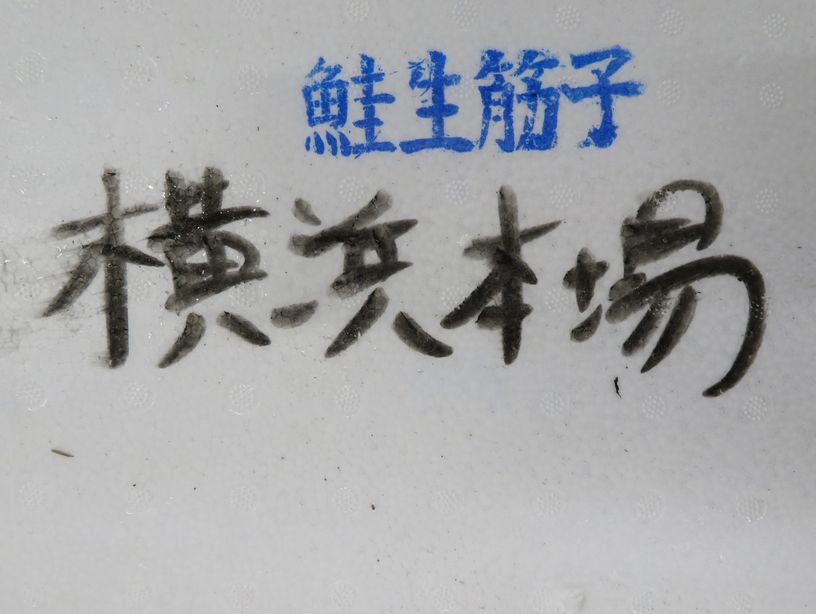 鮭生筋子
横浜本場